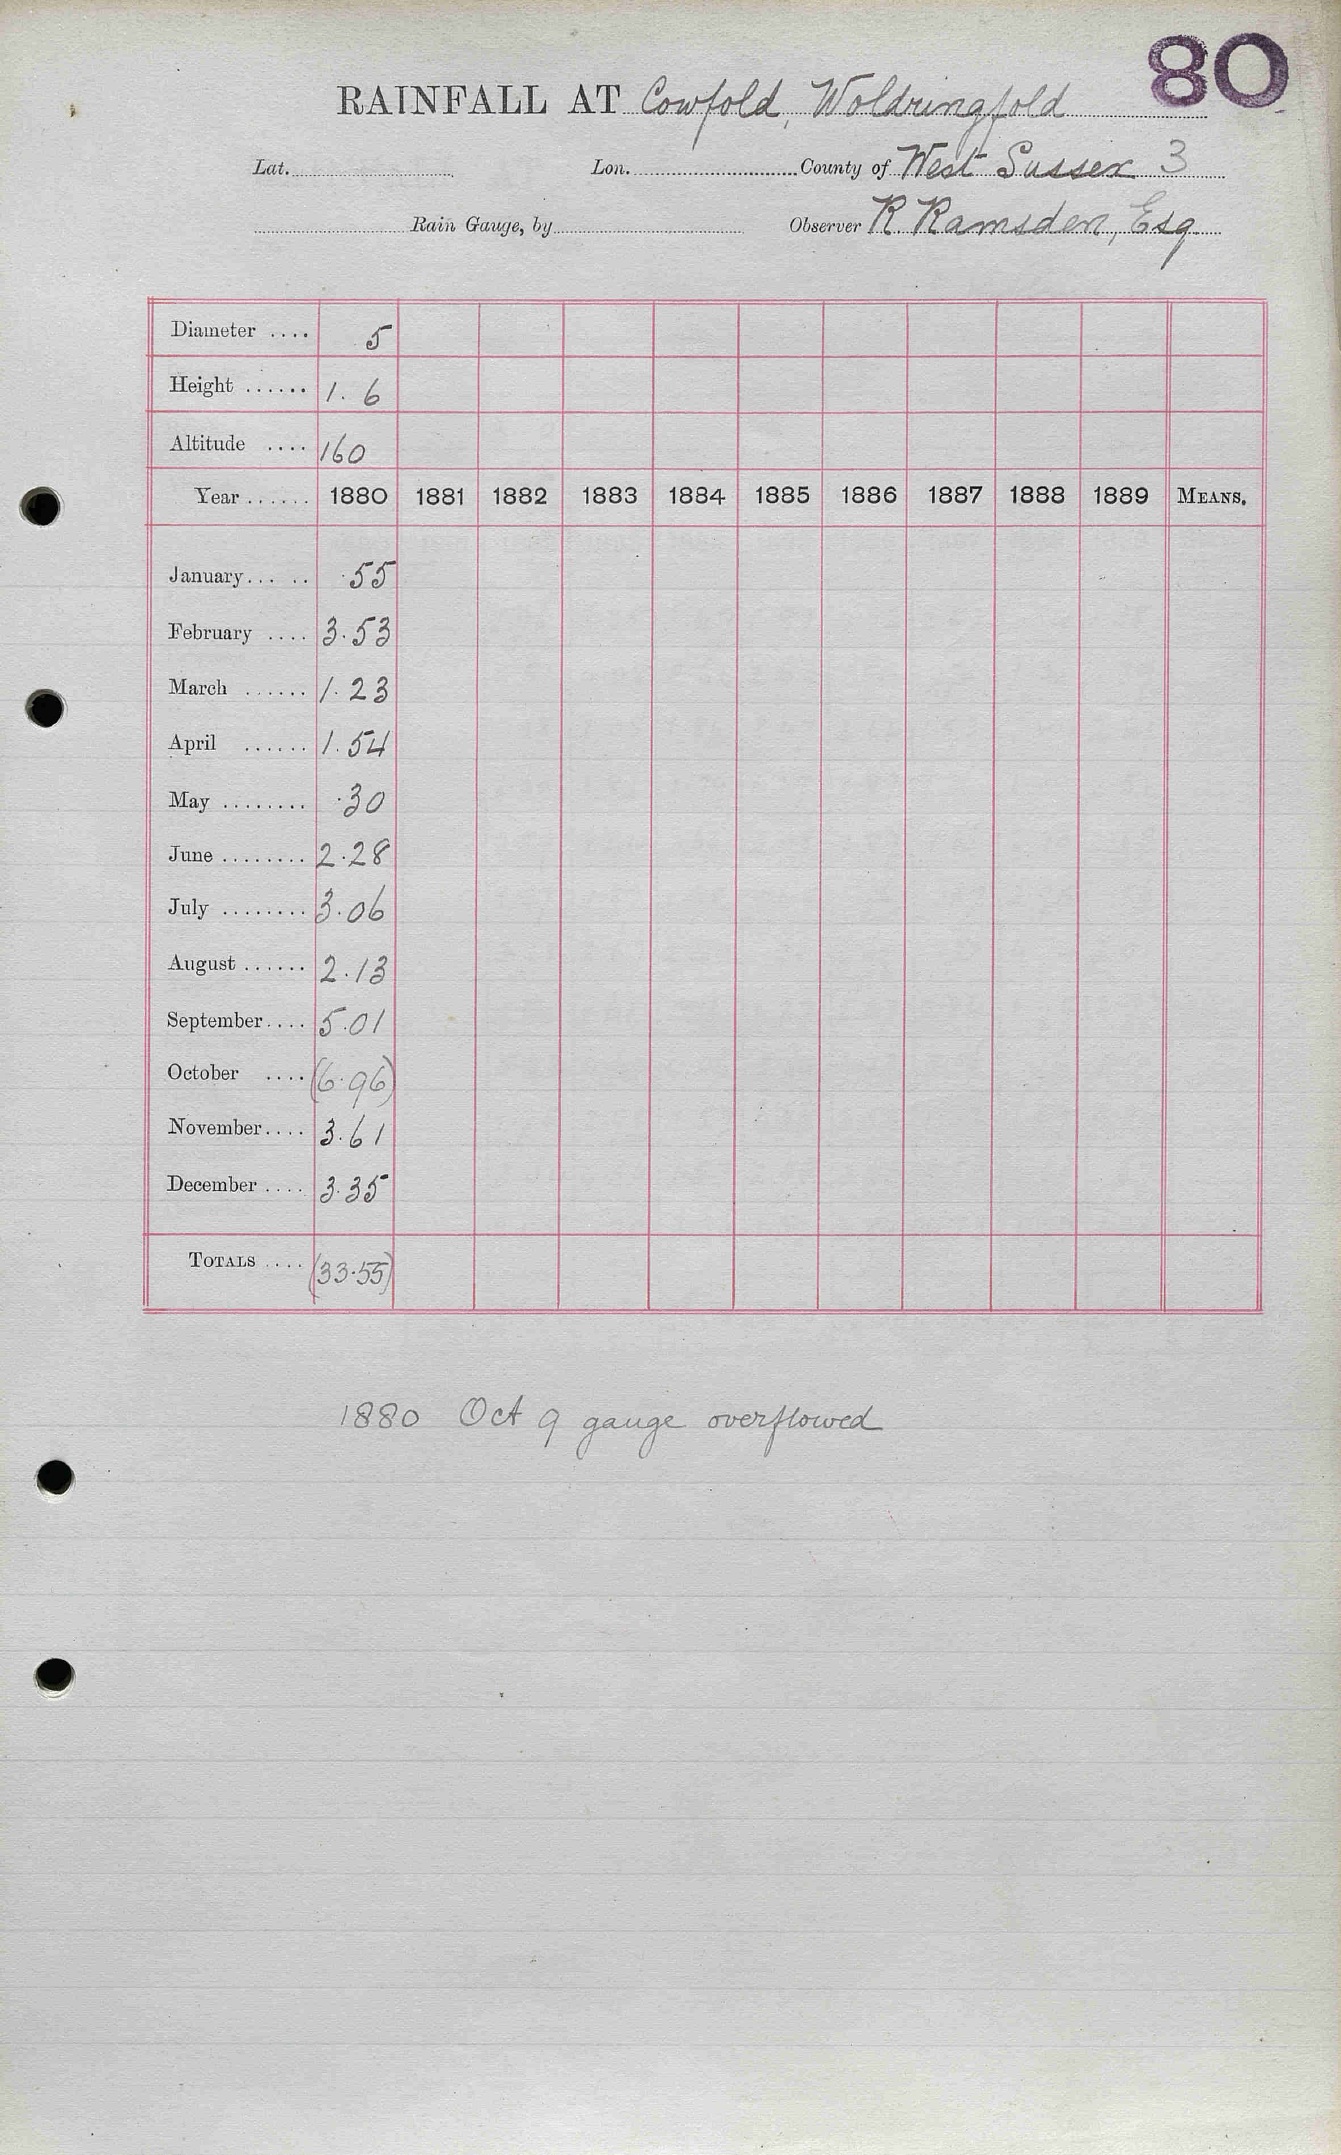 80
RAINFALL AT Cowfold, Woldringfold
Lat. Lon. County of West Sussex 3
Rain Gauge, by Observer R Ramsden, Esq
Diameter .... 5
Height ...... 1. 6
Altitude .... 160
Year ...... 1880 1881 1882 1883 1884 1885 1886 1887 1888 1889 MEANS.
January... .. .55
February .... 3.53
March ...... 1.23
April ...... 1.54
May ........ .30
June ........ 2.28
July ........ 3.06
August ...... 2.13
September.... 5.01
October .... (6.96)
November.... 3.61
December .... 3.35
TOTALS .... (33.55)
1880 Oct 9 gauge overflowed